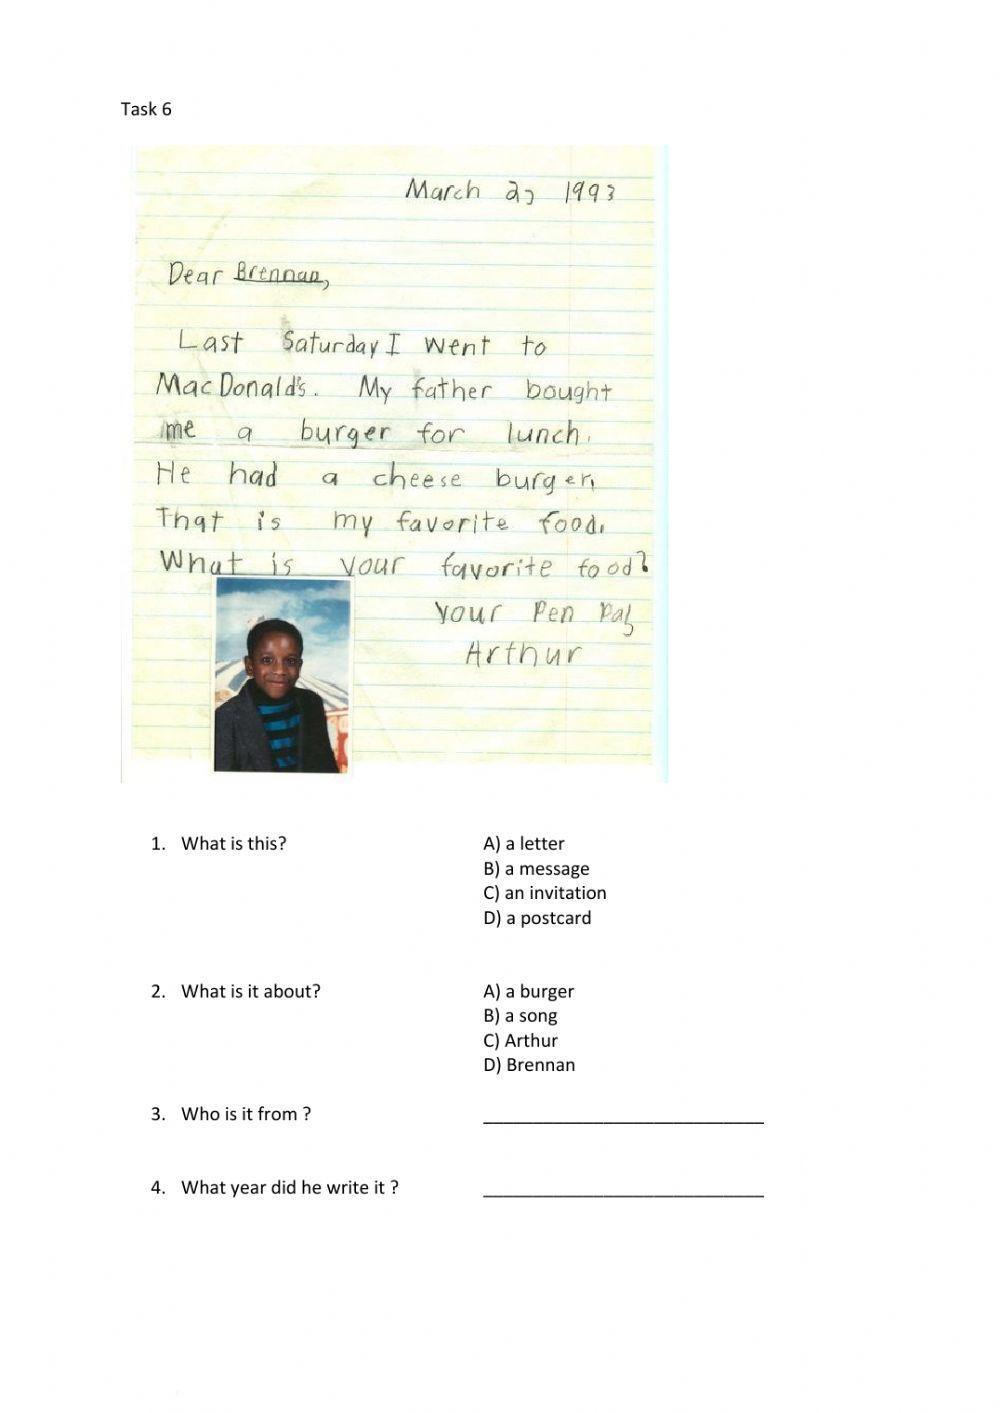 Task 6
March 2, 1993
Dear Brennan,
Last Saturday I went to
MacDonald's. My father bought
me a burger for lunch.
He had a cheese burger,
That is my favorite food.
What is your favorite food?
Your Pen Pal,
Arthur
1. What is this?
A) a letter
B) a message
C) an invitation
D) a postcard
2. What is it about?
A) a burger
B) a song
C) Arthur
D) Brennan
3. Who is it from ?
4. What year did he write it ?